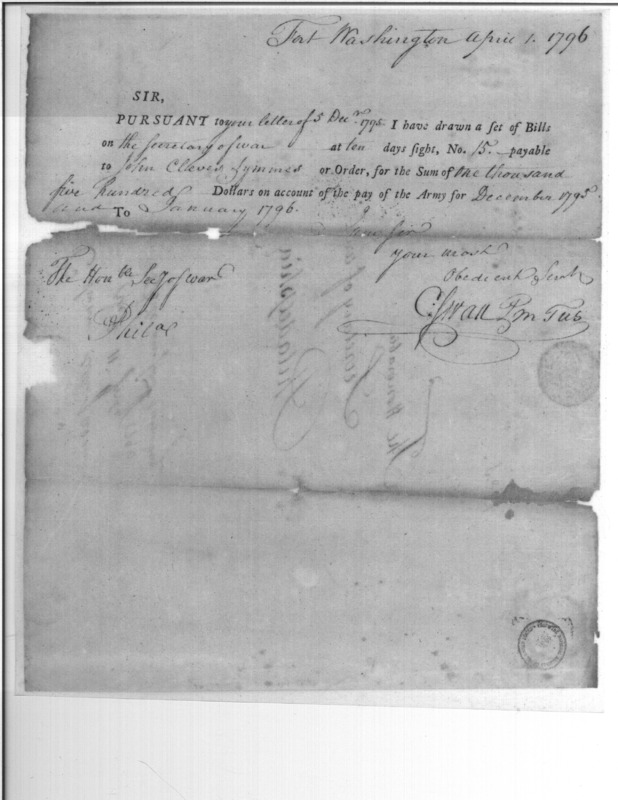 Fort Washington April 1. 1796
SIR,
PURSUANT to your letter of 5 Decr. 1795 I have drawn a set of Bills
on the Secretary of war at ten days sight, No. 15. payable
to John Cleves Symmes or Order, for the Sum of One thousand
five hundred Dollars on account of the pay of the Army for December 1795
and To January 1796.
I am Sir
your most
Obedient Servt
The Honble Secy of war
CSwan P m Tus
Phila